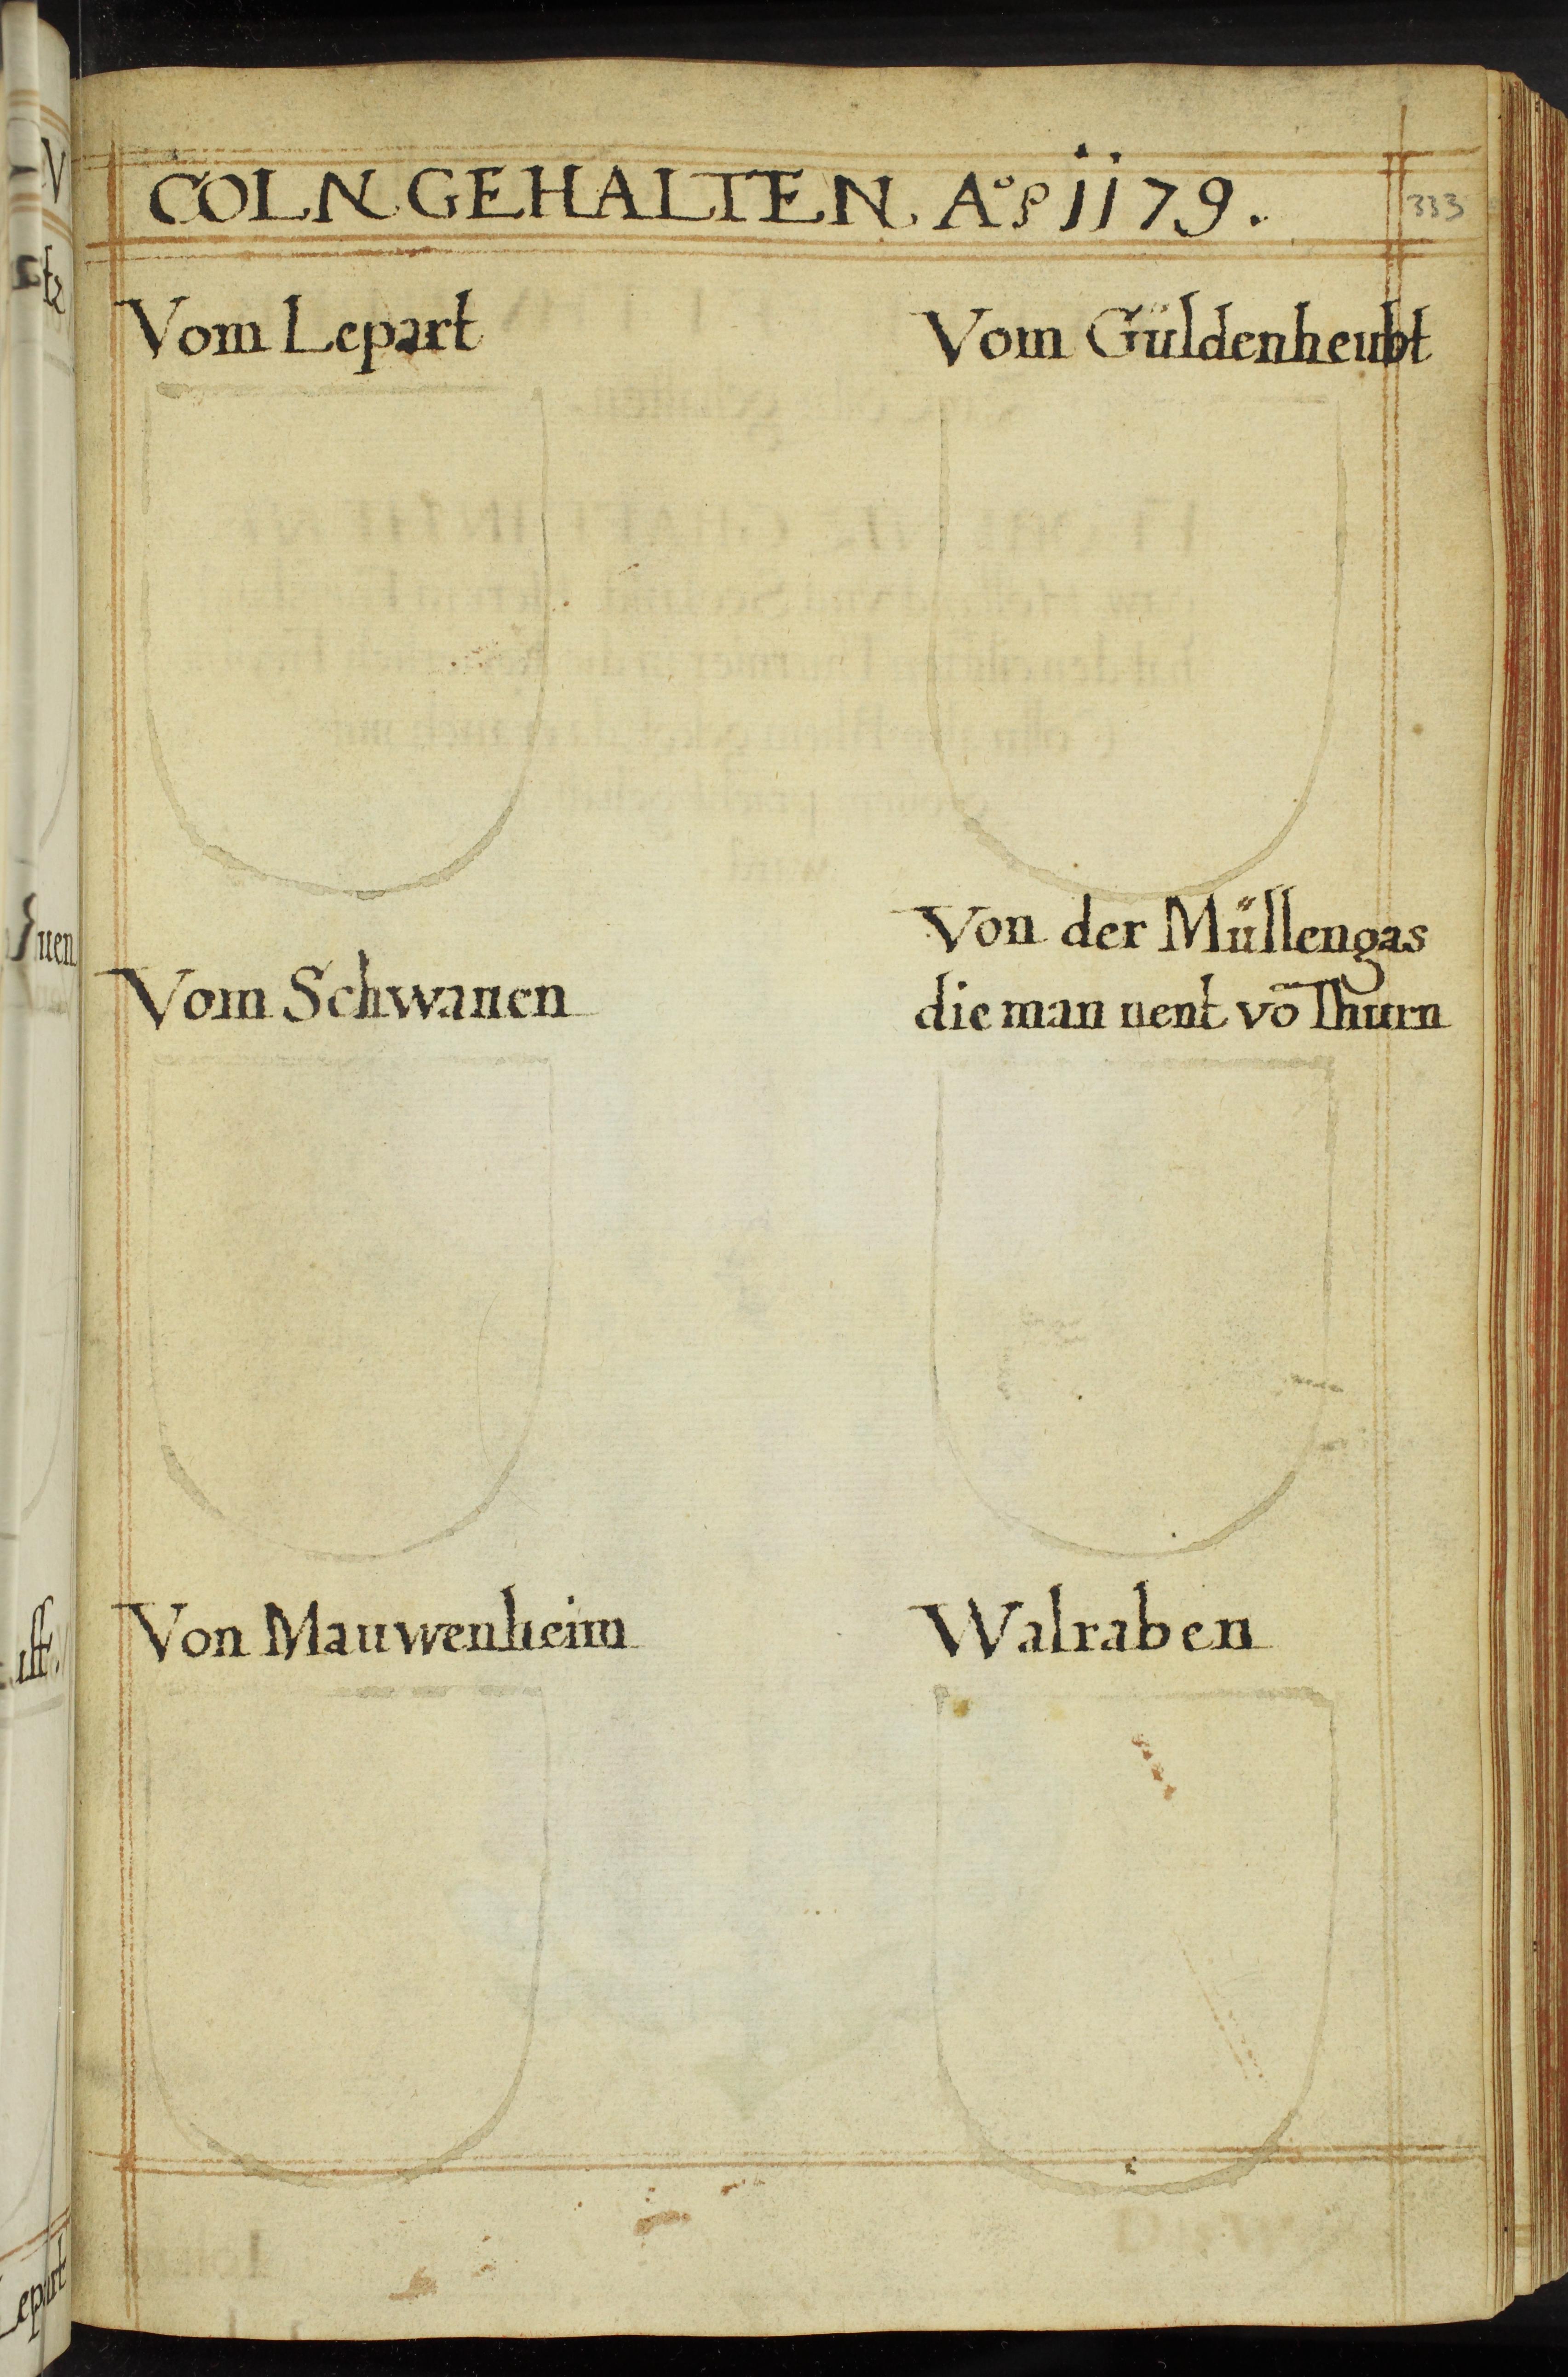 COLN GEHALTEN. A° 1179.
333
Vom Lepart
Vom Güldenheubt
Vom Schwanen
Von der Müllengas
die man nent vō Thurn
Von Mauwenheim
Walraben
Lepart